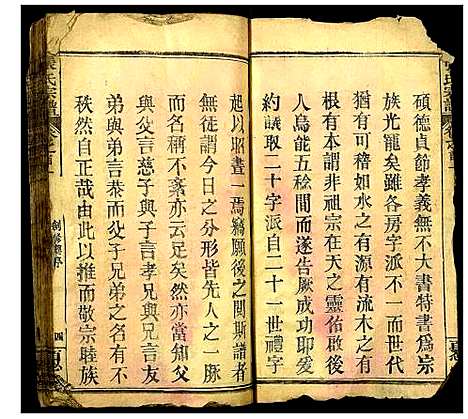 氏宗譜
碩德貞節孝義無不大書特書為宗
族光寵矣雖各房字派不一而世代
猶有可稽如水之有源有流木之有
根有本謂非祖宗在天之靈佑啟後
人烏能五稔間而遂告厥成功耶爰
約議取二十字派自二十一世禮字
起以昭晝一焉緰願後之閱斯譜者
無徒謂今日之分形皆先人之一脈
然不紊亦云足矣然亦當知父
與父言慈子與子言孝兄與兄言友
弟與弟言恭而父子兄弟之名之
秩然自正哉由此以推而敬宗睦族
氏宗譜
卷之首一
創修舊序
四